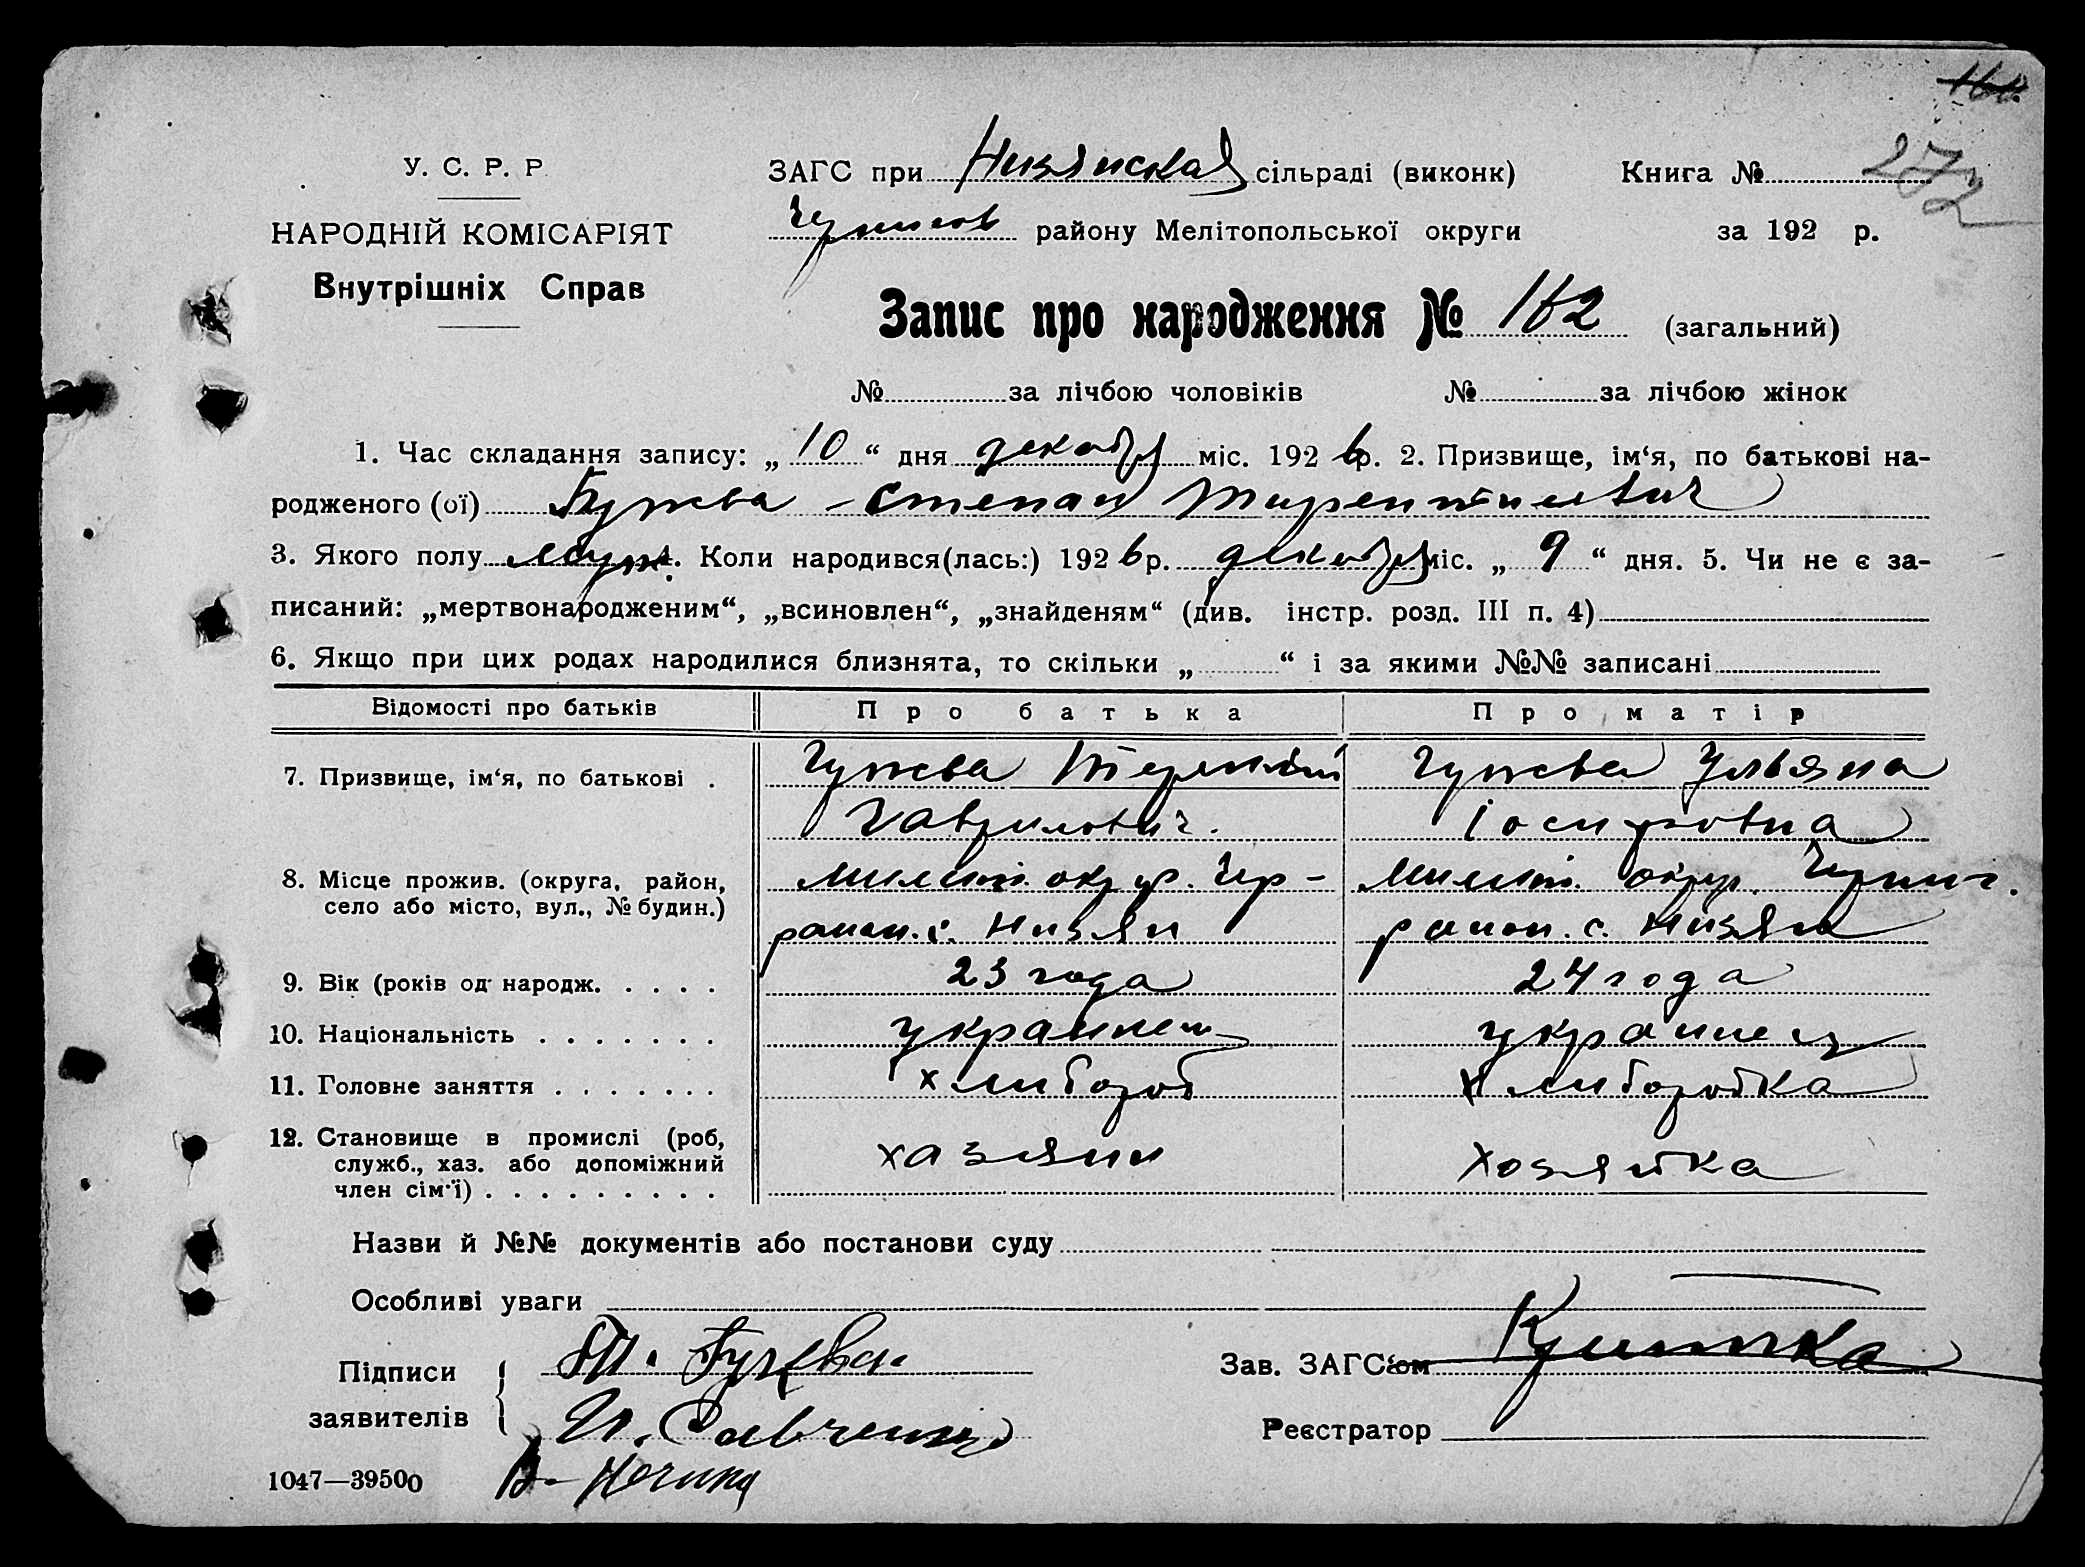 У. С. Р. Р
НАРОДНІЙ КОМІСАРІЯТ
Внутрішніх Справ
ЗАГС при Низянская сільраді (виконк)
Книга № 272
району Мелітопольської округи
за 192 р.
Запис про народження № 162 (загальний)
№ за лічбою чоловіків № за лічбою жінок
1. Час складання запису: „ 10 “ дня декабря міс. 192 6 р. 2. Призвище, ім‘я, по батькові на-
родженого (ої) Гужва Степан Терентиевич
3. Якого полу муж 4. Коли народився(лась:) 192 6 р. декабря міс. „ 9 “ дня. 5. Чи не є за-
писаний: „мертвонародженим“, „всиновлен“, „знайденям“ (див. інстр. розд. III п. 4)
6. Якщо при цих родах народилися близнята, то скільки „ “ і за якими №№ записані
Відомості про батьків Про батька Про матір
7. Призвище, ім‘я, по батькові . Гужва Терентий Гужва Ульяна
Гаврилович. Іосиповна
8. Місце прожив. (округа, район, Мелит. округ. Чер- Мелит. округ. Черниг.
село або місто, вул., № будин.) район. с. Низян район. с. Низян
9. Вік (років од народж. . . . . 23 года 24 года
10. Національність . . . . . . . украинец украинец
11. Головне заняття . . . . . . . хлибороб хлиборобка
12. Становище в промислі (роб,
служб., хаз. або допоміжний хазяин хозяйка
член сім'ї) . . . . . . . . .
Назви й №№ документів або постанови суду
Особливі уваги
Підписи Т. Гужва
Зав. ЗАГС‘ом
заявителів И. Савченко
Реєстратор
1047—39500